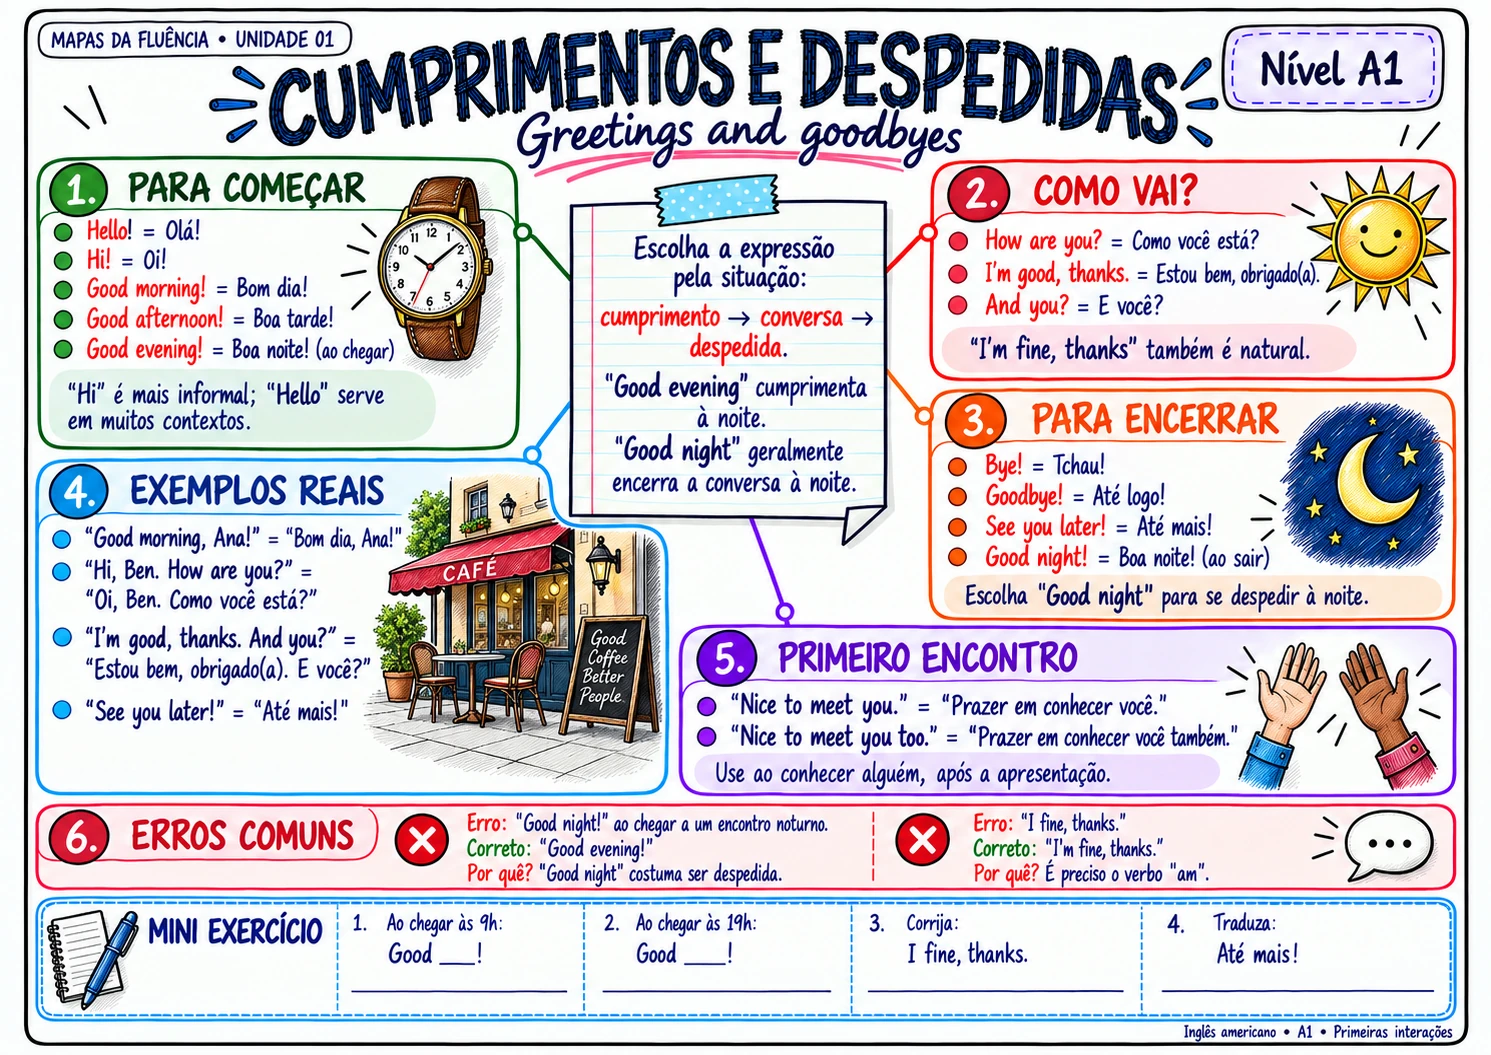 MAPAS DA FLUÊNCIA • UNIDADE 01
CUMPRIMENTOS E DESPEDIDAS
Greetings and goodbyes
Nível A1
1. PARA COMEÇAR
Hello! = Olá!
Hi! = Oi!
Good morning! = Bom dia!
Good afternoon! = Boa tarde!
Good evening! = Boa noite! (ao chegar)
"Hi" é mais informal; "Hello" serve
em muitos contextos.
12
1
2
3
4
5
6
7
8
9
10
11
Escolha a expressão
pela situação:
cumprimento → conversa →
despedida.
"Good evening" cumprimenta
à noite.
"Good night" geralmente
encerra a conversa à noite.
2. COMO VAI?
How are you? = Como você está?
I'm good, thanks. = Estou bem, obrigado(a).
And you? = E você?
"I'm fine, thanks" também é natural.
3. PARA ENCERRAR
Bye! = Tchau!
Goodbye! = Até logo!
See you later! = Até mais!
Good night! = Boa noite! (ao sair)
Escolha "Good night" para se despedir à noite.
4. EXEMPLOS REAIS
"Good morning, Ana!" = "Bom dia, Ana!"
"Hi, Ben. How are you?" =
"Oi, Ben. Como você está?"
"I'm good, thanks. And you?" =
"Estou bem, obrigado(a). E você?"
"See you later!" = "Até mais!"
CAFÉ
Good
Coffee
Better
People.
5. PRIMEIRO ENCONTRO
"Nice to meet you." = "Prazer em conhecer você."
"Nice to meet you too." = "Prazer em conhecer você também."
Use ao conhecer alguém, após a apresentação.
6. ERROS COMUNS
Erro: "Good night!" ao chegar a um encontro noturno.
Correto: "Good evening!"
Por quê? "Good night" costuma ser despedida.
Erro: "I fine, thanks."
Correto: "I'm fine, thanks."
Por quê? É preciso o verbo "am".
MINI EXERCÍCIO
1. Ao chegar às 9h:
Good ___!
2. Ao chegar às 19h:
Good ___!
3. Corrija:
I fine, thanks.
4. Traduza:
Até mais!
Inglês americano • A1 • Primeiras interações